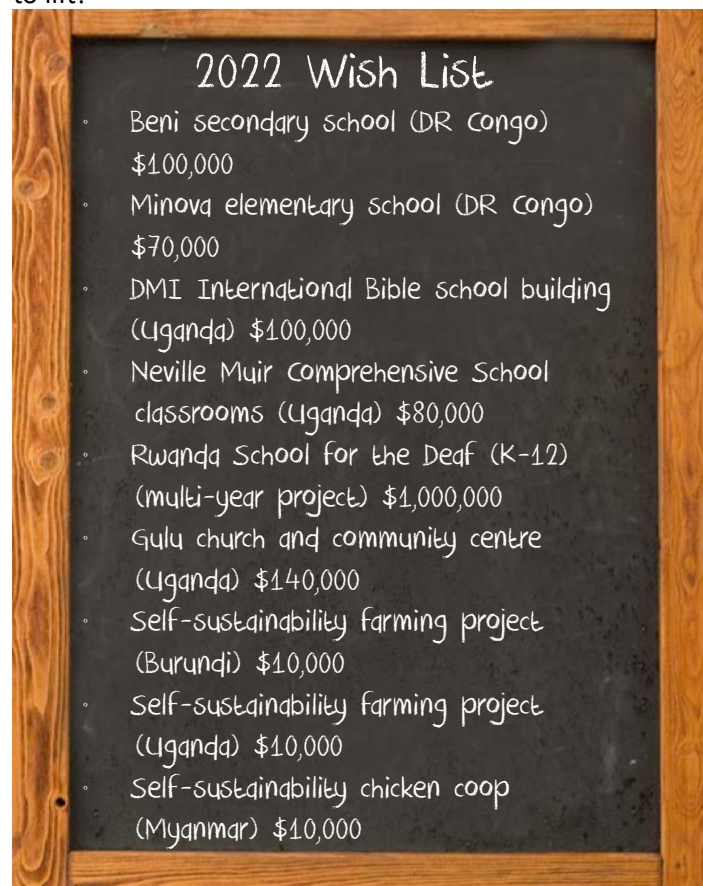 to lift?
2022 Wish List
◦ Beni secondary school (DR Congo)
$100,000
◦ Minova elementary school (DR Congo)
$70,000
◦ DMI International Bible school building
(Uganda) $100,000
◦ Neville Muir Comprehensive School
classrooms (Uganda) $80,000
◦ Rwanda School for the Deaf (K-12)
(multi-year project) $1,000,000
◦ Gulu church and community centre
(Uganda) $140,000
◦ Self-sustainability farming project
(Burundi) $10,000
◦ Self-sustainability farming project
(Uganda) $10,000
◦ Self-sustainability chicken coop
(Myanmar) $10,000